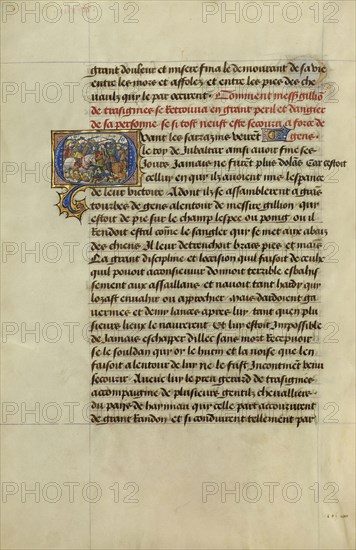 grant douleur et misere fina le demourant de sa vie
entre les mors et affolez et entre les pies des che
vaulx qui le par occirent. Comment messire gillion
de trasignies se retrouva en grant peril et dangier
de sa personne se si tost neust este secouru a force de
Quant les sarrazins veirent gens.
le roy de Jubaltar ainsi avoir fine ses
Jours Jamais ne furent plus dolans Car cestoit
cellui en qui ilz avoient mis lesperance
de leur victoire Adont ilz se assemblerent a grans
tourbes de gens alentour de messire gillion qui
estoit de pie sur le champ lespee ou poing ou il
se rendoit estal comme le sanglier qui se met aux abais
des chiens Il leur detrenchoit bras pies et mains
La grant discipline et loccision quil faisoit de ceulx
quil pouoit aconsieuvir donnoit terrible esbahis
sement aux assaillans et navoit tant hardy qui
lozast envahir ou approcher mais dardoient ga
vermes et demy lances apres luy tant quen plu
sieurs lieux le navrerent Et luy estoit Impossible
de Jamais eschaper dillec sans mort Recepvoir
se le souldan qui or le hutin et la noise que len
faisoit alentour de luy ne le fust Incontinent venu
secourir Avecques luy le preu gerard de trasignies
accompaignie de plusieurs gentilz chevalliers
du pays de haynnau qui celle part accoururent
de grant Randon et si conduirent tellement par
PHOTO12